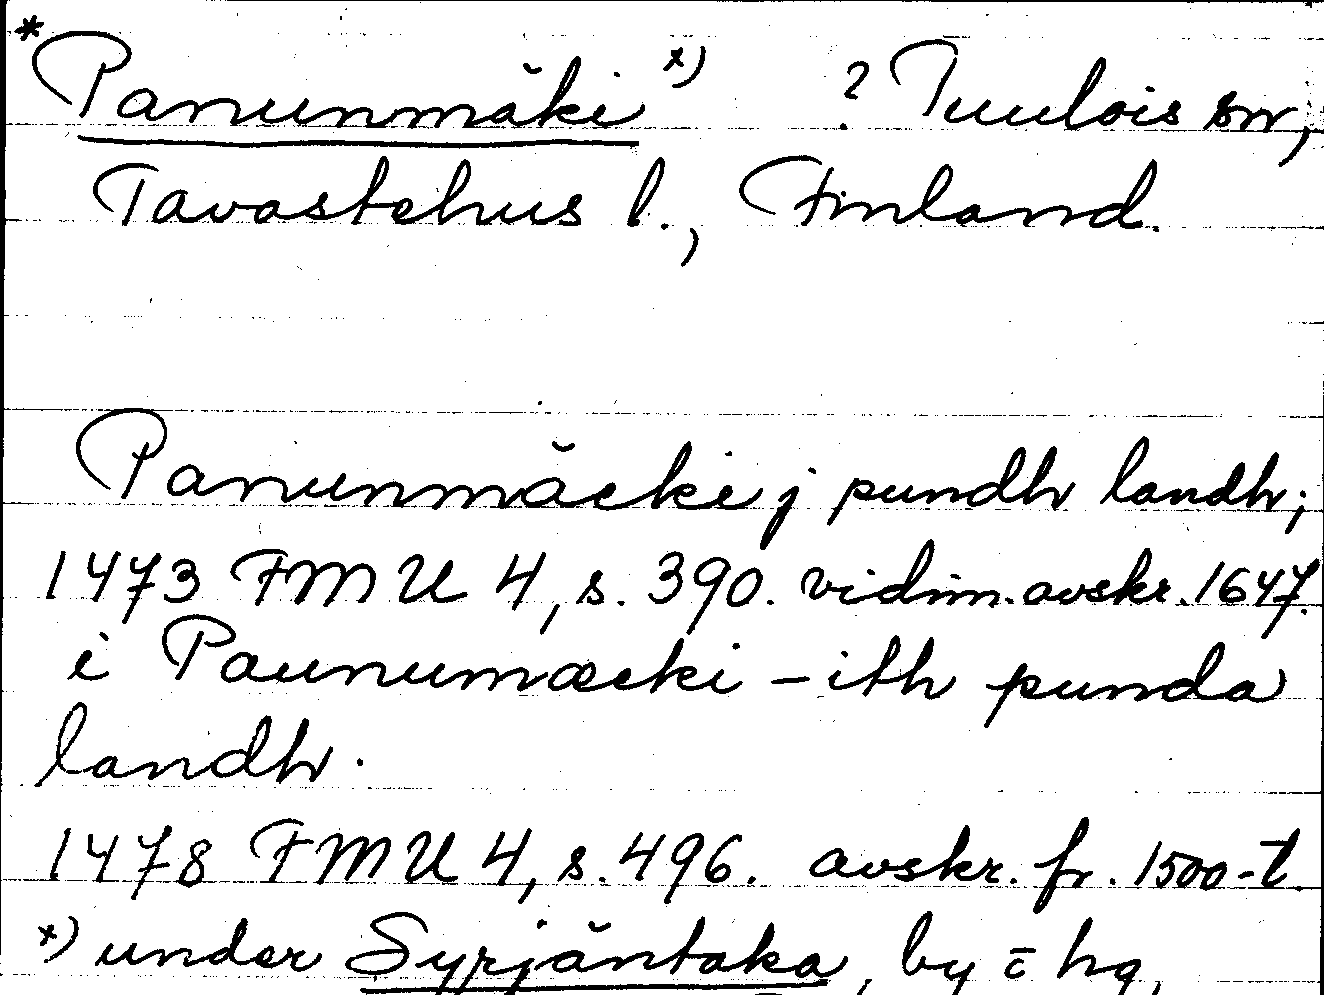 *Panunmäki x) ? Tuulois sn,
Tavastehus l., Finland.
Panunmäcke j pundh landh;
1473 FMU 4, s. 390. vidim. avskr. 1647.
i Paunumæcki – ith punda
landh.
1478 FMU 4, s. 496. avskr. fr. 1500-t.
x) under Syrjäntaka, by o hg,